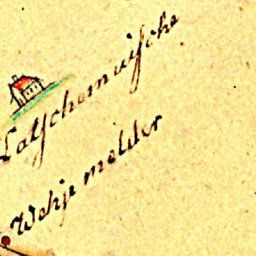 Latschemuische
Wehje melder